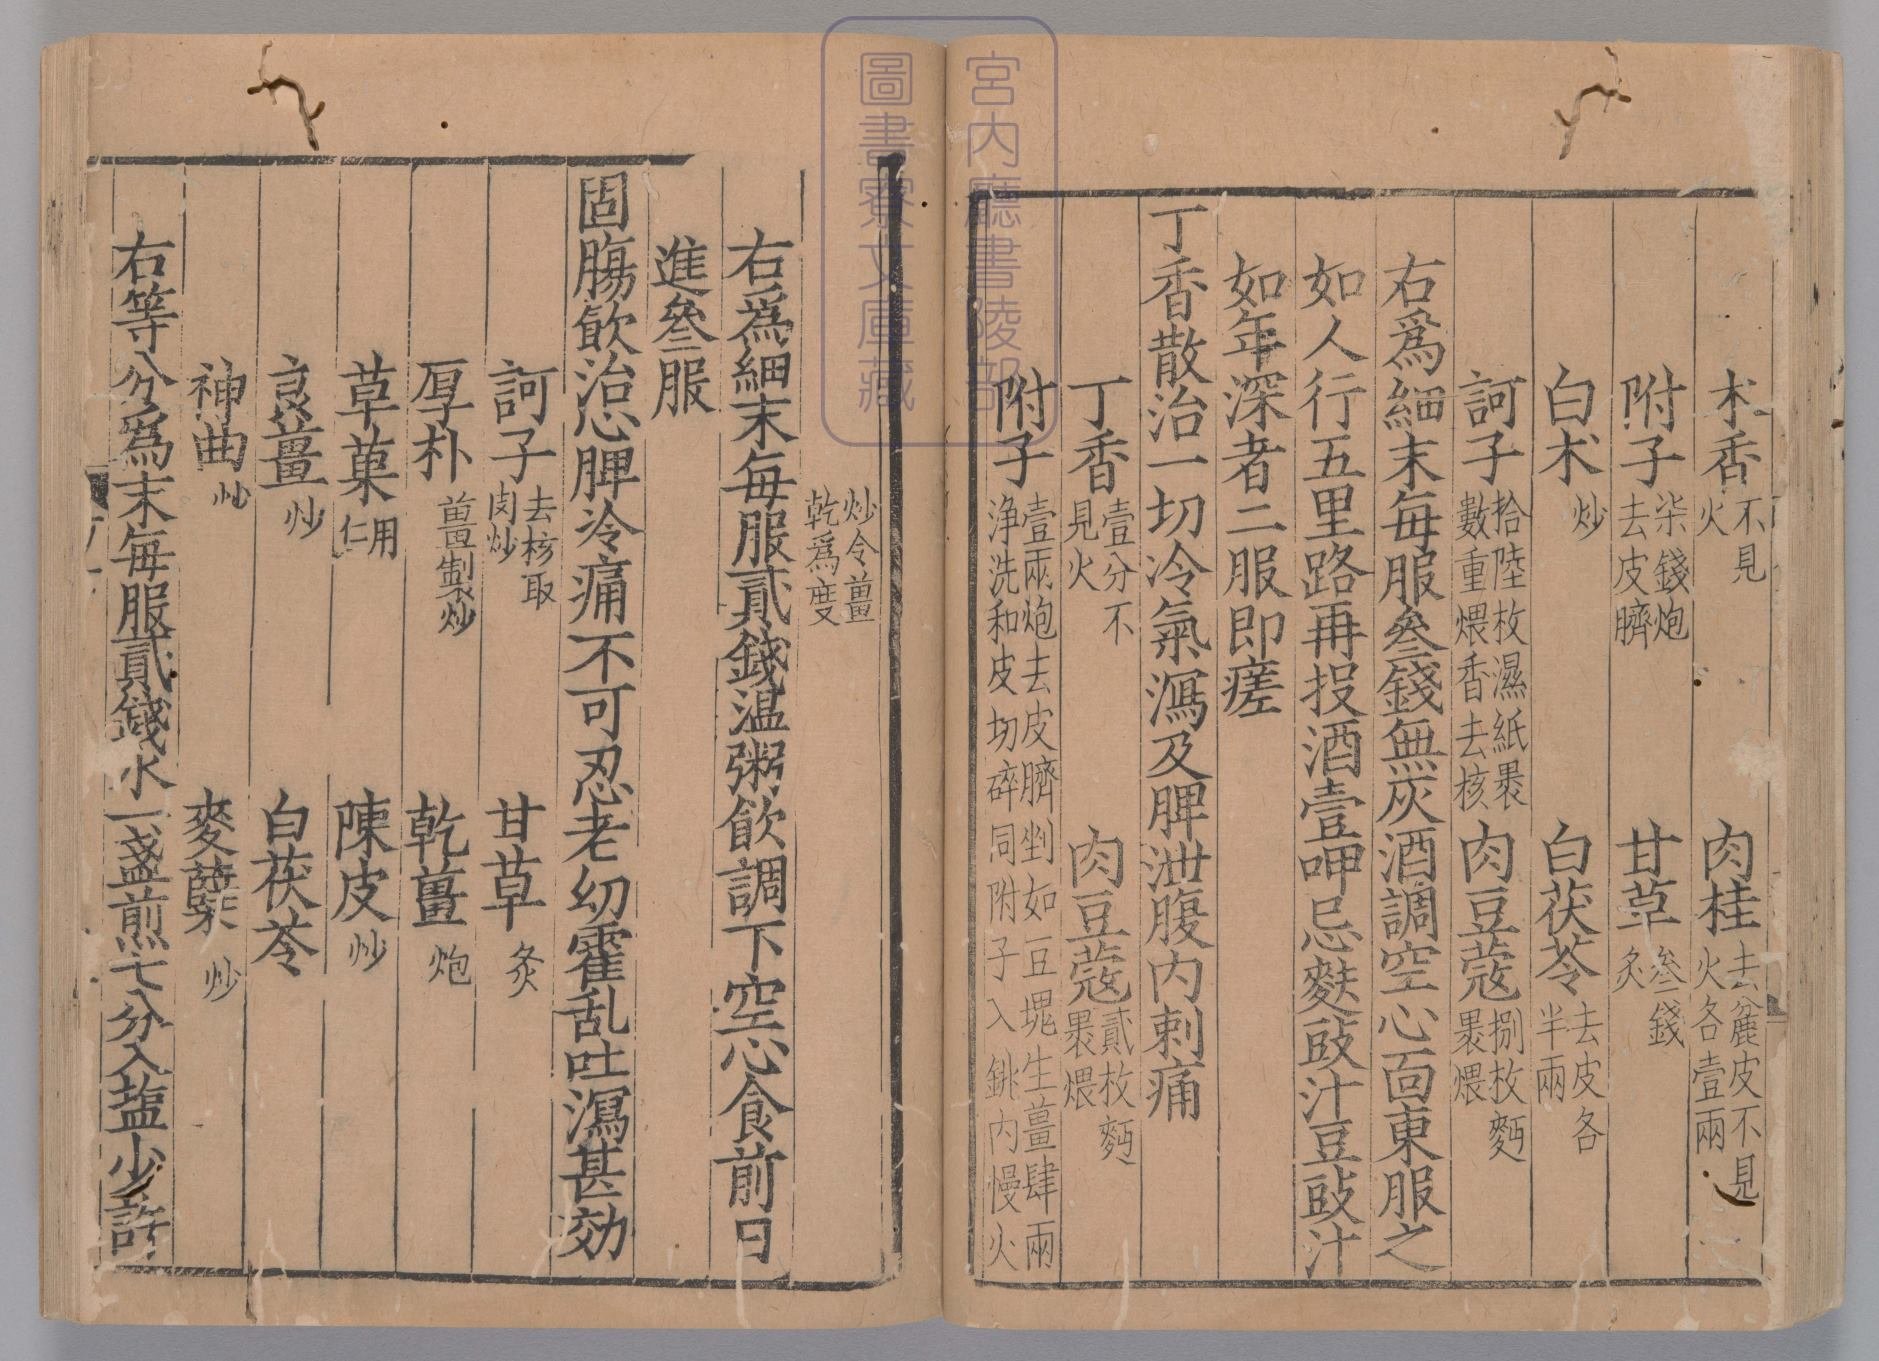 木香不見火　肉桂去麄皮不見火各壹兩
附子柒錢炮去皮臍　甘草叁錢炙
白朮炒　白茯苓去皮各半兩
訶子拾陸枚濕紙裹數重煨香去核　肉豆蔻捌枚麪裹煨
右爲細末每服叁錢無灰酒調空心面東服之
如人行五里路再投酒壹呷忌麩豉汁豆豉汁
如年深者二服即瘥
丁香散治一切冷氣瀉及脾泄腹内刺痛
丁香壹分不見火　肉豆蔻貳枚麪裹煨
附子壹兩炮去皮臍剉如豆塊生薑肆兩淨洗和皮切碎同附子入銚内慢火
炒令薑乾爲度
右爲細末每服貳錢温粥飲調下空心食前日
進叁服
固腸飲治心脾冷痛不可忍老幼霍乱吐瀉甚効
訶子去核取肉炒　甘草炙
厚朴薑製炒　乾薑炮
草菓用仁　陳皮炒
良薑炒　白茯苓
神曲炒　麥糵炒
右等分爲末每服貳錢水一盞煎七分入塩少許
宮内廳書陵部
圖書寮文庫藏